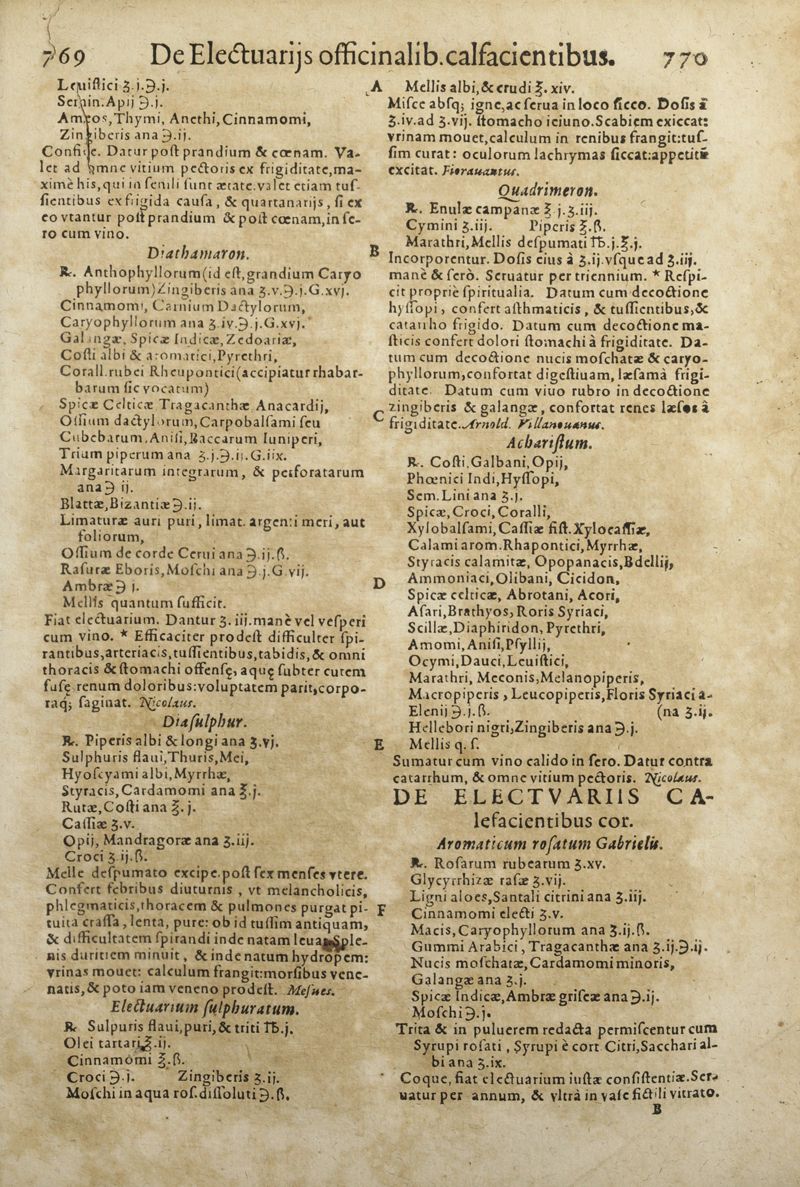 769 De Electuarijs officinalib.calfacientibus. 770
Leuistici ʒ.j.℈.j.
Semin.Apij ℈.j.
Ameos,Thymi, Anethi,Cinnamomi,
Zingiberis ana ℈.ij.
Confice. Datur post prandium & cœnam. Va-
let ad omne vitium pectoris ex frigiditate,ma-
ximè his,qui in senili sunt ætate.valet etiam tus-
sientibus ex frigida causa, & quartanarijs, si ex
eo vtantur post prandium & post cœnam,in fe-
ro cum vino.
Diathamaron.
℞. Anthophyllorum(id est,grandium Caryo
phyllorum)Zingiberis ana ʒ.v.℈.j.G.xvj.
Cinnamomi, Carnium Dactylorum,
Caryophyllorum ana ʒ.iv.℈.j.G.xvj.
Galangæ, Spicæ Indicæ,Zedoariæ,
Costi albi & aromatici,Pyrethri,
Corall.rubei Rheupontici(accipiatur rhabar-
barum sic vocatum)
Spicæ Celticæ Tragacanthæ Anacardij,
Ossium dactylorum,Carpobalsami seu
Cubebarum,Anisi,Baccarum Iuniperi,
Trium piperum ana ʒ.j.℈.ij.G.iix.
Margaritarum integrarum, & perforatarum
ana ℈ ij.
Blattæ,Bizantiæ ℈.ij.
Limaturæ auri puri, limat. argenti meri, aut
foliorum,
Ossium de corde Cerui ana ℈.ij.ß.
Rasuræ Eboris,Moschi ana ℈.j.G.vij.
Ambræ ℈ j.
Mellis quantum sufficit.
Fiat electuarium. Dantur ʒ.iij.manè vel vesperi
cum vino. * Efficaciter prodest difficulter spi-
rantibus,arteriacis,tussientibus,tabidis,& omni
thoracis & stomachi offensę, aquę subter cutem
fusę renum doloribus:voluptatem parit,corpo-
raq; saginat. Nicolaus.
Diasulphur.
℞. Piperis albi & longi ana ʒ.vj.
Sulphuris flaui,Thuris,Mei,
Hyoscyami albi,Myrrhæ,
Styracis,Cardamomi ana ℥.j.
Rutæ,Costi ana ℥.j.
Cassiæ ʒ.v.
Opij, Mandragoræ ana ʒ.iij.
Croci ʒ ij.ß.
Melle despumato excipe.post sex menses vtere.
Confert febribus diuturnis , vt melancholicis,
phlegmaticis,thoracem & pulmones purgat pi-
tuita crassa, lenta, pure: ob id tussim antiquam,
& difficultatem spirandi inde natam leuat,Sple-
nis duritiem minuit, & inde natum hydropem:
vrinas mouet: calculum frangit:morsibus vene-
natis,& poto iam veneno prodest. Mesues.
Electuarium sulphuratum.
℞ Sulpuris flaui,puri,& triti ℔.j.
Olei tartari ℥.ij.
Cinnamomi ℥.ß.
Croci ℈.j. Zingiberis ʒ.ij.
Moschi in aqua ros.dissoluti ℈.ß.
A Mellis albi,& crudi ℥.xiv.
Misce absq; igne,ac serua in loco sicco. Dosis à
ʒ.iv.ad ʒ.vij. stomacho ieiuno.Scabiem exiccat:
vrinam mouet,calculum in renibus frangit:tus-
sim curat: oculorum lachrymas siccat:appetitũ
excitat. Fiorauantus.
Quadrimeron.
℞. Enulæ campanæ ℥ j.ʒ.iij.
Cymini ʒ.iij. Piperis ℥.ß.
Marathri,Mellis despumati ℔.j.℥.j.
B Incorporentur. Dosis eius à ʒ.ij.vsque ad ʒ.iij.
manè & serò. Seruatur per triennium. * Respi-
cit propriè spiritualia. Datum cum decoctione
hyssopi, confert asthmaticis, & tussientibus,&
catarrho frigido. Datum cum decoctione ma-
sticis confert dolori stomachi à frigiditate. Da-
tum cum decoctione nucis moschatæ & caryo-
phyllorum,confortat digestiuam, læsamà frigi-
ditate. Datum cum vino rubro in decoctione
C zingiberis & galangæ, confortat renes læsos à
frigiditate. Arnold. Villanouanus.
Acharistum.
℞. Costi,Galbani,Opij,
Phœnici Indi,Hyssopi,
Sem.Lini ana ʒ.j.
Spicæ,Croci,Coralli,
Xylobalsami,Cassiæ fist.Xylocassiæ,
Calami arom.Rhapontici,Myrrhæ,
Styracis calamitæ, Opopanacis,Bdellij,
D Ammoniaci,Olibani, Cicidon,
Spicæ celticæ, Abrotani, Acori,
Asari,Brathyos, Roris Syriaci,
Scillæ,Diaphiridon, Pyrethri,
Amomi,Anisi,Psyllij,
Ocymi,Dauci,Leuistici,
Marathri, Meconis,Melanopiperis,
Macropiperis , Leucopiperis,Floris Syriaci a-
Elenij ℈.j.ß. (na ʒ.ij.
Hellebori nigri,Zingiberis ana ℈.j.
E Mellis q. s.
Sumatur cum vino calido in sero. Datur contra
catarrhum, & omne vitium pectoris. Nicolaus.
DE ELECTVARIIS CA-
lefacientibus cor.
Aromaticum rosatum Gabrielis.
℞. Rosarum rubearum ʒ.xv.
Glycyrrhizæ rasæ ʒ.vij.
Ligni aloes,Santali citrini ana ʒ.iij.
F Cinnamomi electi ʒ.v.
Macis,Caryophyllorum ana ʒ.ij.ß.
Gummi Arabici, Tragacanthæ ana ʒ.ij.℈.ij.
Nucis moschatæ,Cardamomi minoris,
Galangæ ana ʒ.j.
Spicæ Indicæ,Ambræ griseæ ana ℈.ij.
Moschi ℈.j.
Trita & in puluerem redacta permiscentur cum
Syrupi rosati, Syrupi è cort Citri,Sacchari al-
bi ana ʒ.ix.
Coque, fiat electuarium iustæ consistentiæ.Ser-
uatur per annum, & vltrà in vase fictili vitrato.
B